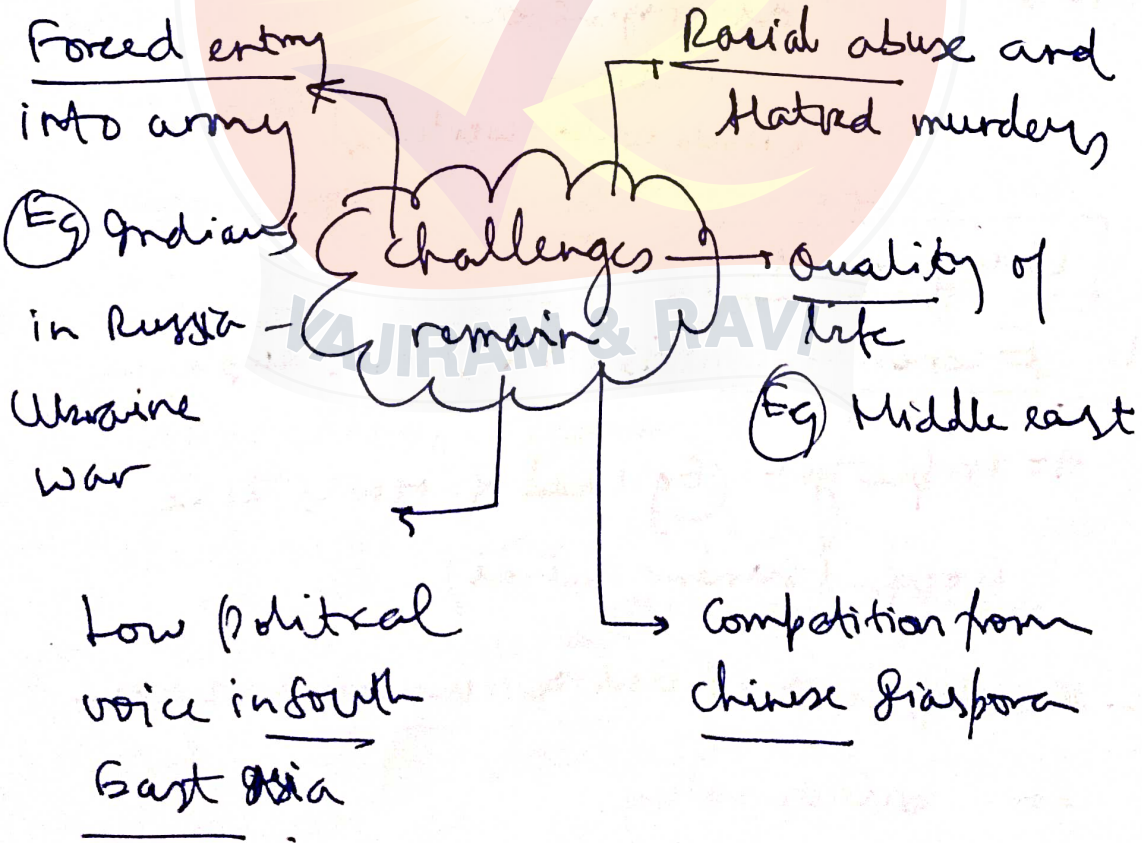 Forced entry
into army
Eg Indians
in Russia -
Ukraine
war
Racial abuse and
Hatred murders
challenges
remain
Quality of
life
Eg Middle east
Low Political
voice in South
East Asia
Competition from
Chinese diaspora
VAJIRAM & RAVI